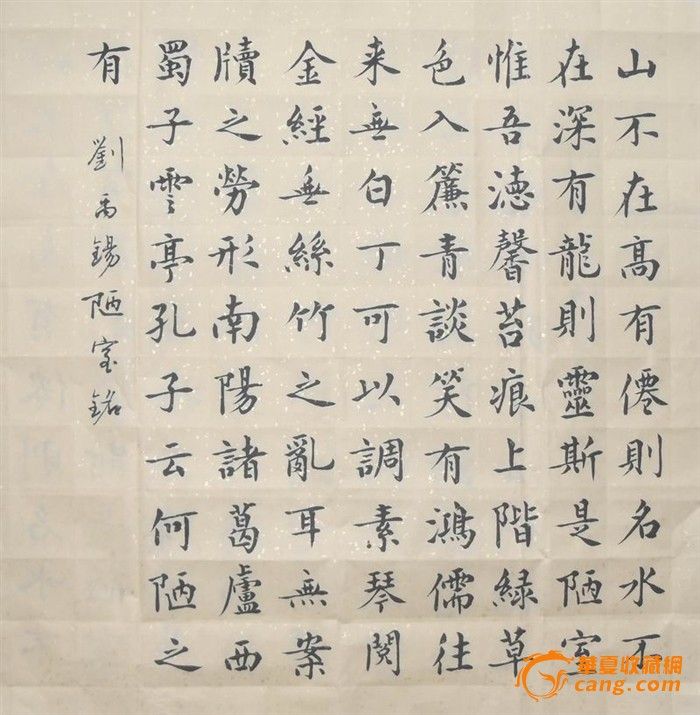 山不在髙有僊則名水不
在深有龍則靈斯是陋室
惟吾徳馨苔痕上階緑草
色入簾青談笑有鴻儒往
来無白丁可以調素琴閱
金經無絲竹之亂耳無案
牘之勞形南陽諸葛廬西
蜀子雲亭孔子云何陋之
有
劉禹錫陋室銘
華夏收藏網
cang.com